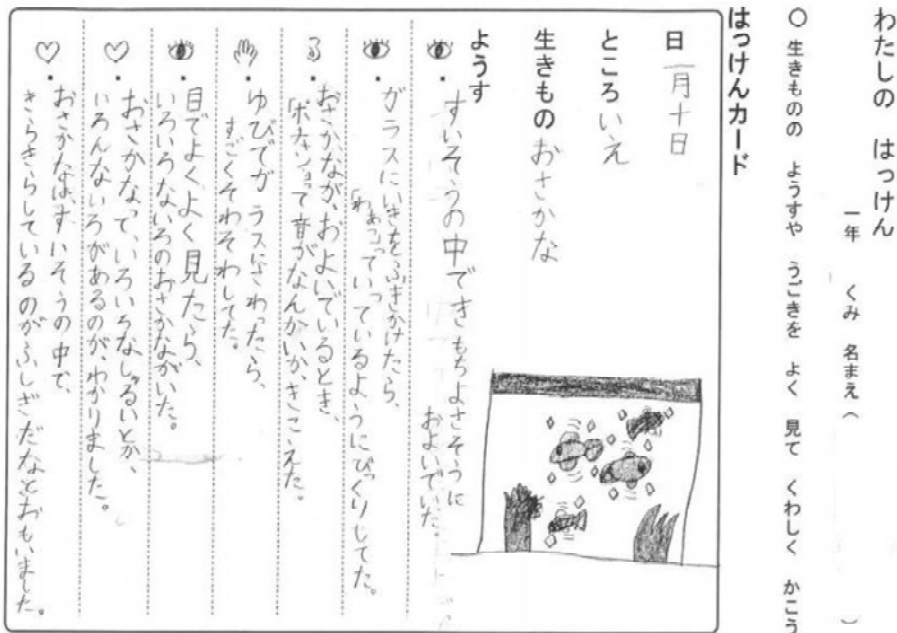 わたしの はっけん
一年 くみ 名まえ( )
○ 生きものの ようすや うごきを よく 見て くわしく かこう
はっけんカード
日 一月十日
ところ いえ
生きもの おさかな
ようす
・すいそうの中できもちよさそうに
およいでいた。
・ガラスにいきをふきかけたら、
「わあっ」っていっているようにびっくりしてた。
・おさかなが、およいでいるとき、
「ポチャン」って音がなんかいか、きこえた。
・ゆびでガラスにさわったら、
すごくそわそわしてた。
・目でよく、よく見たら、
いろいろないろのおさかながいた。
・おさかなって、いろいろなしゅるいとか、
いろんないろがあるのが、わかりました。
・おさかなは、すいそうの中で、
きらきらしているのがふしぎだなとおもいました。